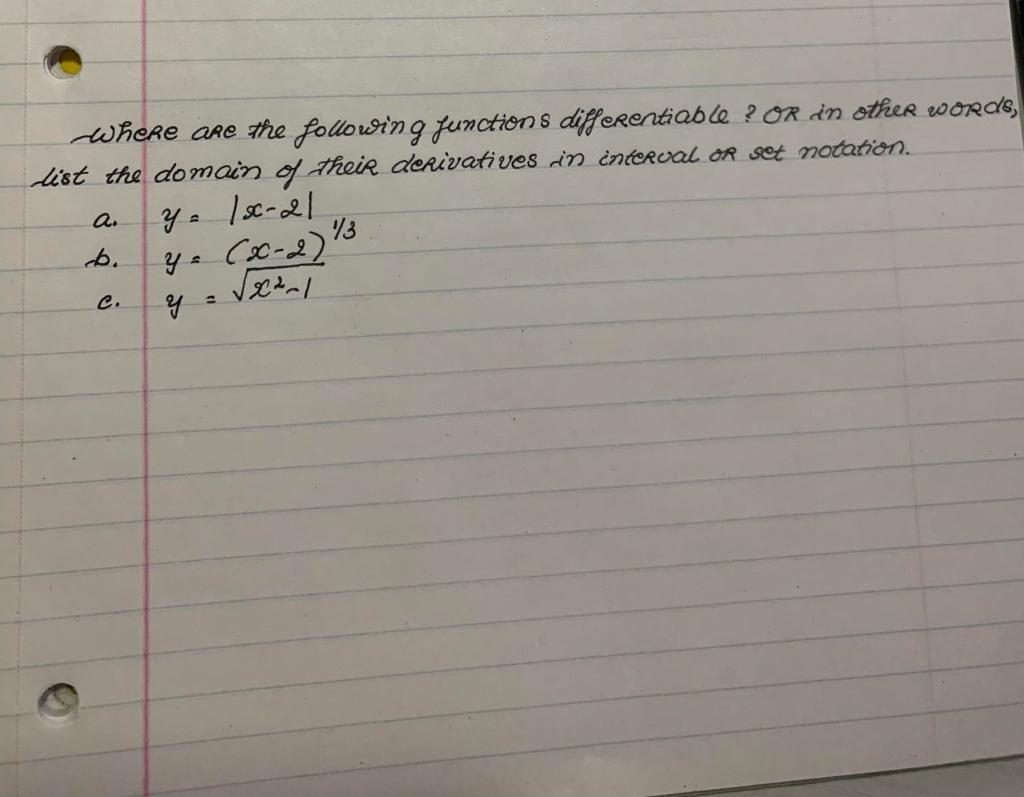 Where are the following functions differentiable ? OR in other words,
list the domain of their derivatives in interval or set notation.
a. y = |x-2|
b. y = (x-2)^1/3
c. y = √x²-1